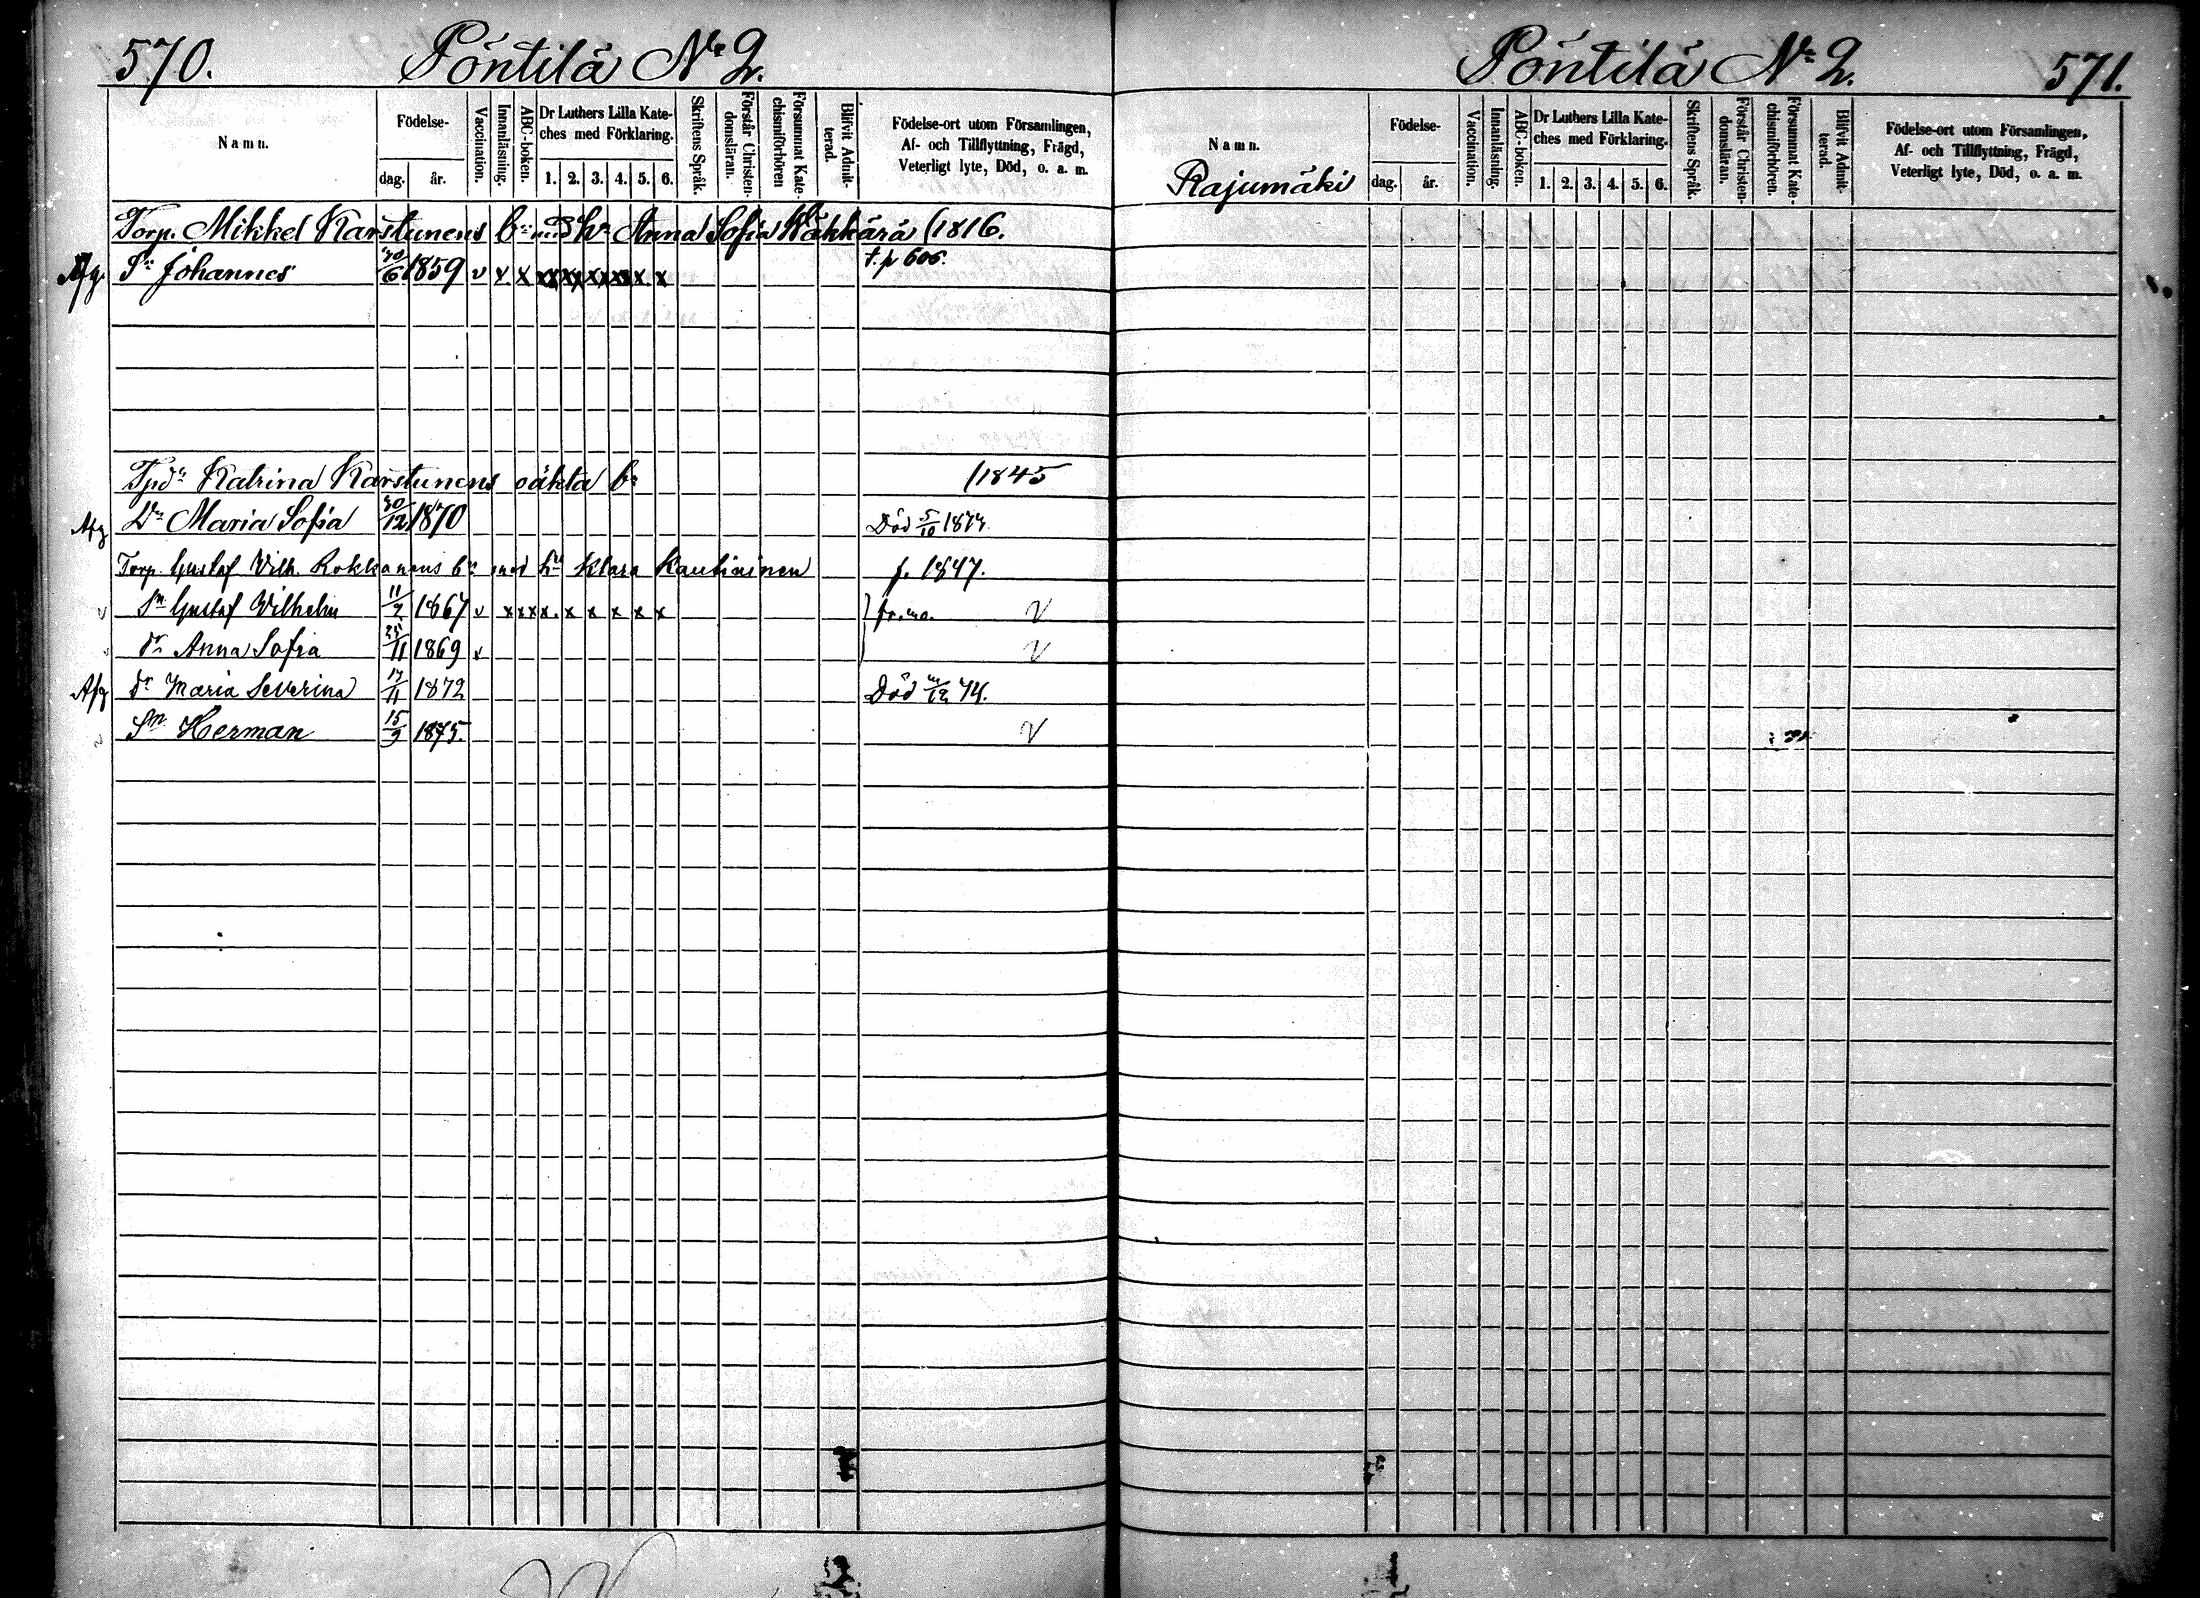 570. Pöntilä No 2.
Namn.
Födelse-
dag. år.
Vaccination.
Innanläsning.
ABC-boken.
Dr Luthers Lilla Kate-
ches med Förklaring.
1. 2. 3. 4. 5. 6.
Skriftens Språk.
Förstår Christen-
domsläran.
Försummat Kate-
chismiförhören
Blifvit Admit-
terad.
Födelse-ort utom Församlingen,
Af- och Tillflyttning, Frägd,
Veterligt lyte, Död, o. a. m.
Torp. Mikkel Karstunens bn med hu Anna Sofia (1816.
Afg. Sn Johannes 30/6 1859 v x x x x x x x x t. p 606.
Katrina Karstunens oäkta bn (1845
Afg Dr Maria Sofia 30/12 1870 Död 5/10 1877.
Torp. Gustaf Vilh. Rokkanens bn med hu Klara Kautiainen f. 1847.
Sn Gustaf Wilhelm 11/2 1867 v x x x x. x x x x x fr. mo. V
dr Anna Sofia 25/11 1869 v V
Afg dr Maria Severina 17/11 1872 Död /12 74.
Sn Herman 15/9 1875. V
Pöntilä No 2. 571.
Namn.
Rajumäki
Födelse-
dag. år.
Vaccination.
Innanläsning.
ABC-boken.
Dr Luthers Lilla Kate-
ches med Förklaring.
1. 2. 3. 4. 5. 6.
Skriftens Språk.
Förstår Christen-
domsläran.
Försummat Kate-
chismiförhören.
Blifvit Admit-
terad.
Födelse-ort utom Församlingen,
Af- och Tillflyttning, Frägd,
Veterligt lyte, Död, o. a. m.